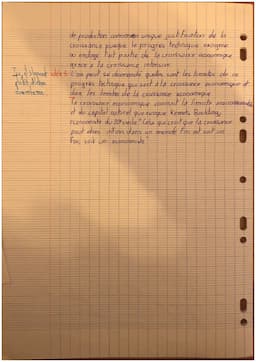 de production comme unique justification de la
croissance puisque le progrès technique exogène
ou endogène fait partie de la croissance économique
grâce à la croissance intensive.
idée 3: L'on peut se demander quelles sont les limites de ce
progrès technique qui sert à la croissance économique et
donc les limites de la croissance économique
La croissance économique connait la limite
et du capital naturel qu'évoque Kenneth Boulding,
économiste du 20e siècle " Celui qui croit que la croissance
peut être infinie dans un monde fini est soit un
fou, soit un économiste"